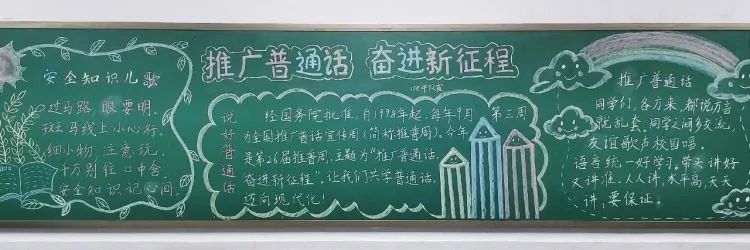 安全知识儿歌
过马路,眼要明,
斑马线上小心行。
细小物,注意玩,
千万别往口中含,
安全知识记心间。
推广普通话 奋进新征程
说好普通话
经国务院批准,自1998年起,每年9月 第三周
为全国推广普话宣传周(简称推普周)。今年
是第26届推普周,主题为“推广普通话,
奋进新征程”,让我们共学普通话,
迈向现代化!
推广普通话
同学们,各方来,都说方言
就乱套。同学之间多交流,
友谊歌声校园唱。
语言统一好学习,带头讲好
又讲准。人人讲,水平高,天天
讲,要保证。